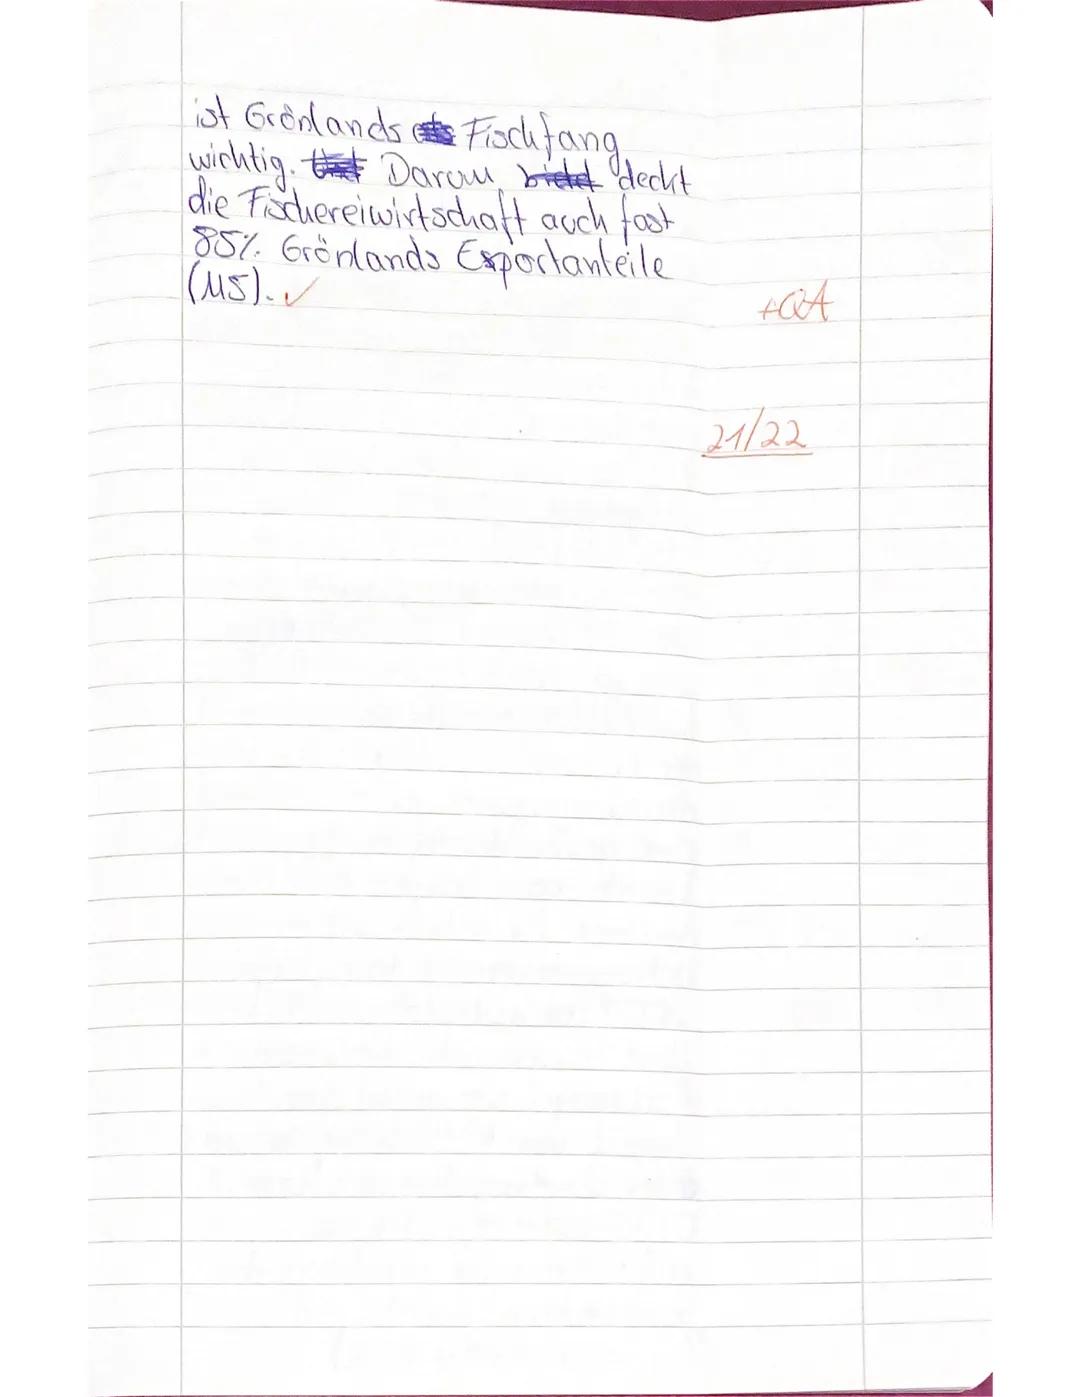 ist Grönlands Fischfang
wichtig. Darum deckt
die Fischereiwirtschaft auch fast
85% Grönlands Exportanteile
(M5). ✓
+QA
21/22